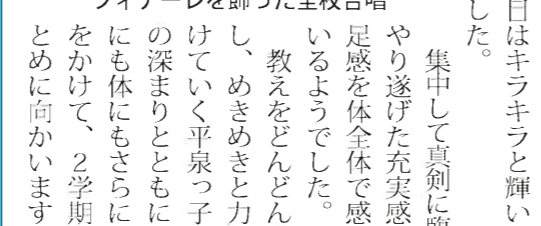 フィナーレを飾った全校合唱
日はキラキラと輝い
した。
集中して真剣に臨
やり遂げた充実感
足感を体全体で感
いるようでした。
教えをどんどん
し、めきめきと力
けていく平泉っ子
の深まりとともに
にも体にもさらに
をかけて、2学期
とめに向かいます